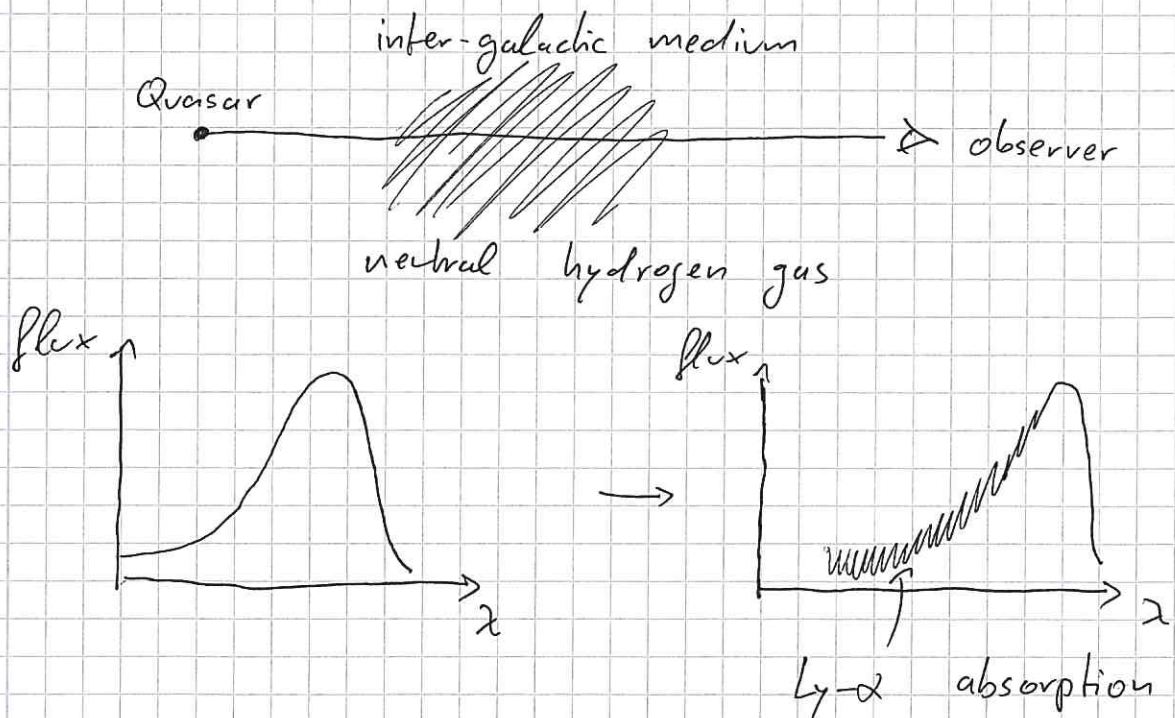 inter-galactic medium
Quasar
observer
neutral hydrogen gas
flux
flux
λ
λ
Ly-α absorption